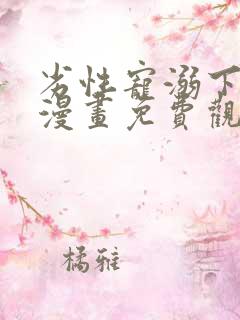 劣性寵溺下
漫畫免費觀
橘雅